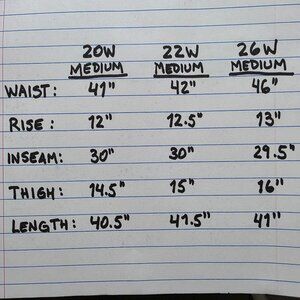 20W 22W 26W
MEDIUM MEDIUM MEDIUM
WAIST: 41" 42" 46"
RISE: 12" 12.5" 13"
INSEAM: 30" 30" 29.5"
THIGH: 14.5" 15" 16"
LENGTH: 40.5" 41.5" 41"